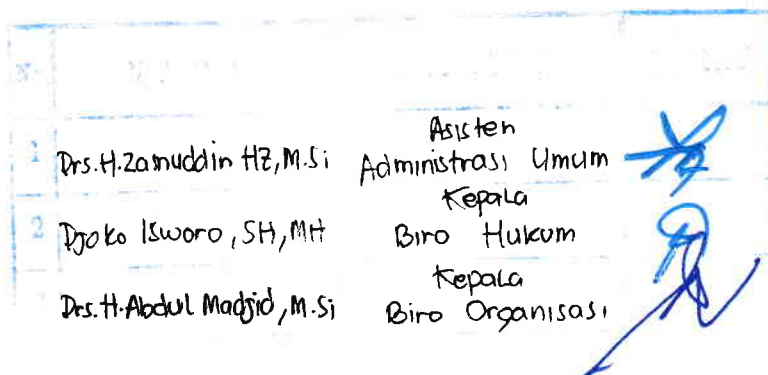 1 Drs.H.Zainuddin HZ, M.Si Asisten Administrasi Umum
2 Djoko Isworo, SH, MH Kepala Biro Hukum
Drs.H.Abdul Madjid, M.Si Kepala Biro Organisasi